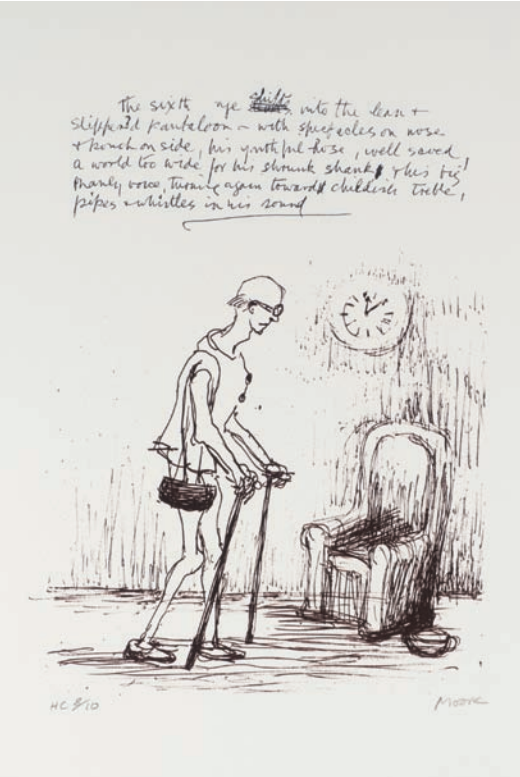 the sixth age shifts into the lean +
slipper'd pantaloon - with spectacles on nose
+ pouch on side, his youthful hose, well saved
a world too wide for his shrunk shank, & his big
manly voice, turning again toward childish treble,
pipes + whistles in his sound
HC 9/10
Moore